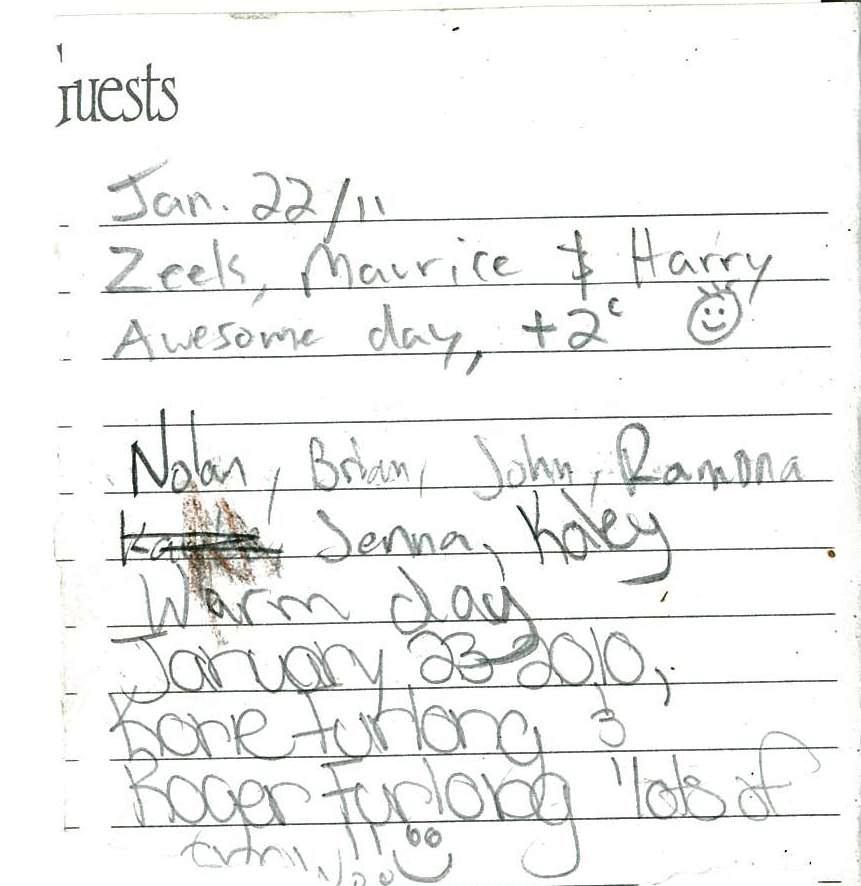 uests
Jan. 22/11
Zeels, Maurice & Harry
Awesome day, +2°
Nolan, Brian, John, Ramona
Jenna, Kaley
Warm day
January 23 2010,
Furlong &
Roger Furlong lots of